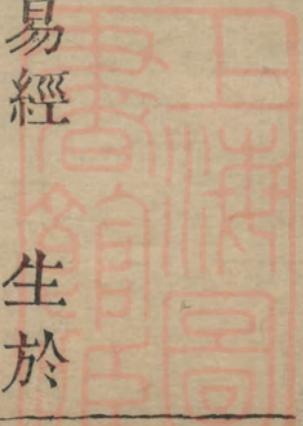 易經 生於
上海圖
書館